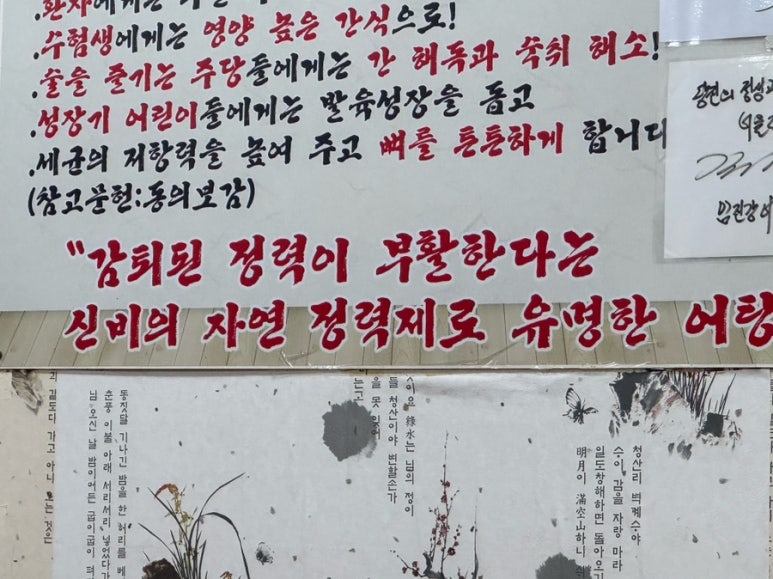 .수험생에게는 영양 높은 간식으로!
.술을 즐기는 주당들에게는 간 해독과 숙취 해소!
.성장기 어린이들에게는 발육성장을 돕고
.세균의 저항력을 높여 주고 뼈를 튼튼하게 합니다
(참고문헌:동의보감)
"감퇴된 정력이 부활한다는
신비의 자연 정력제로 유명한 어탕
청산리 벽계수야
수이 감을 자랑 마라
일도창해하면 돌아오기
明月이 滿空山하니
綠水는 님의 정이
들 청산이야 변할손가
을 못 잊어
는고
동짓달 기나긴 밤을 한 허리를 베
춘풍 이불 아래 서리서리 넣었다가
님 오신 날 밤이어든 굽이굽이 펴
길도다 가고 아니 오는 것은